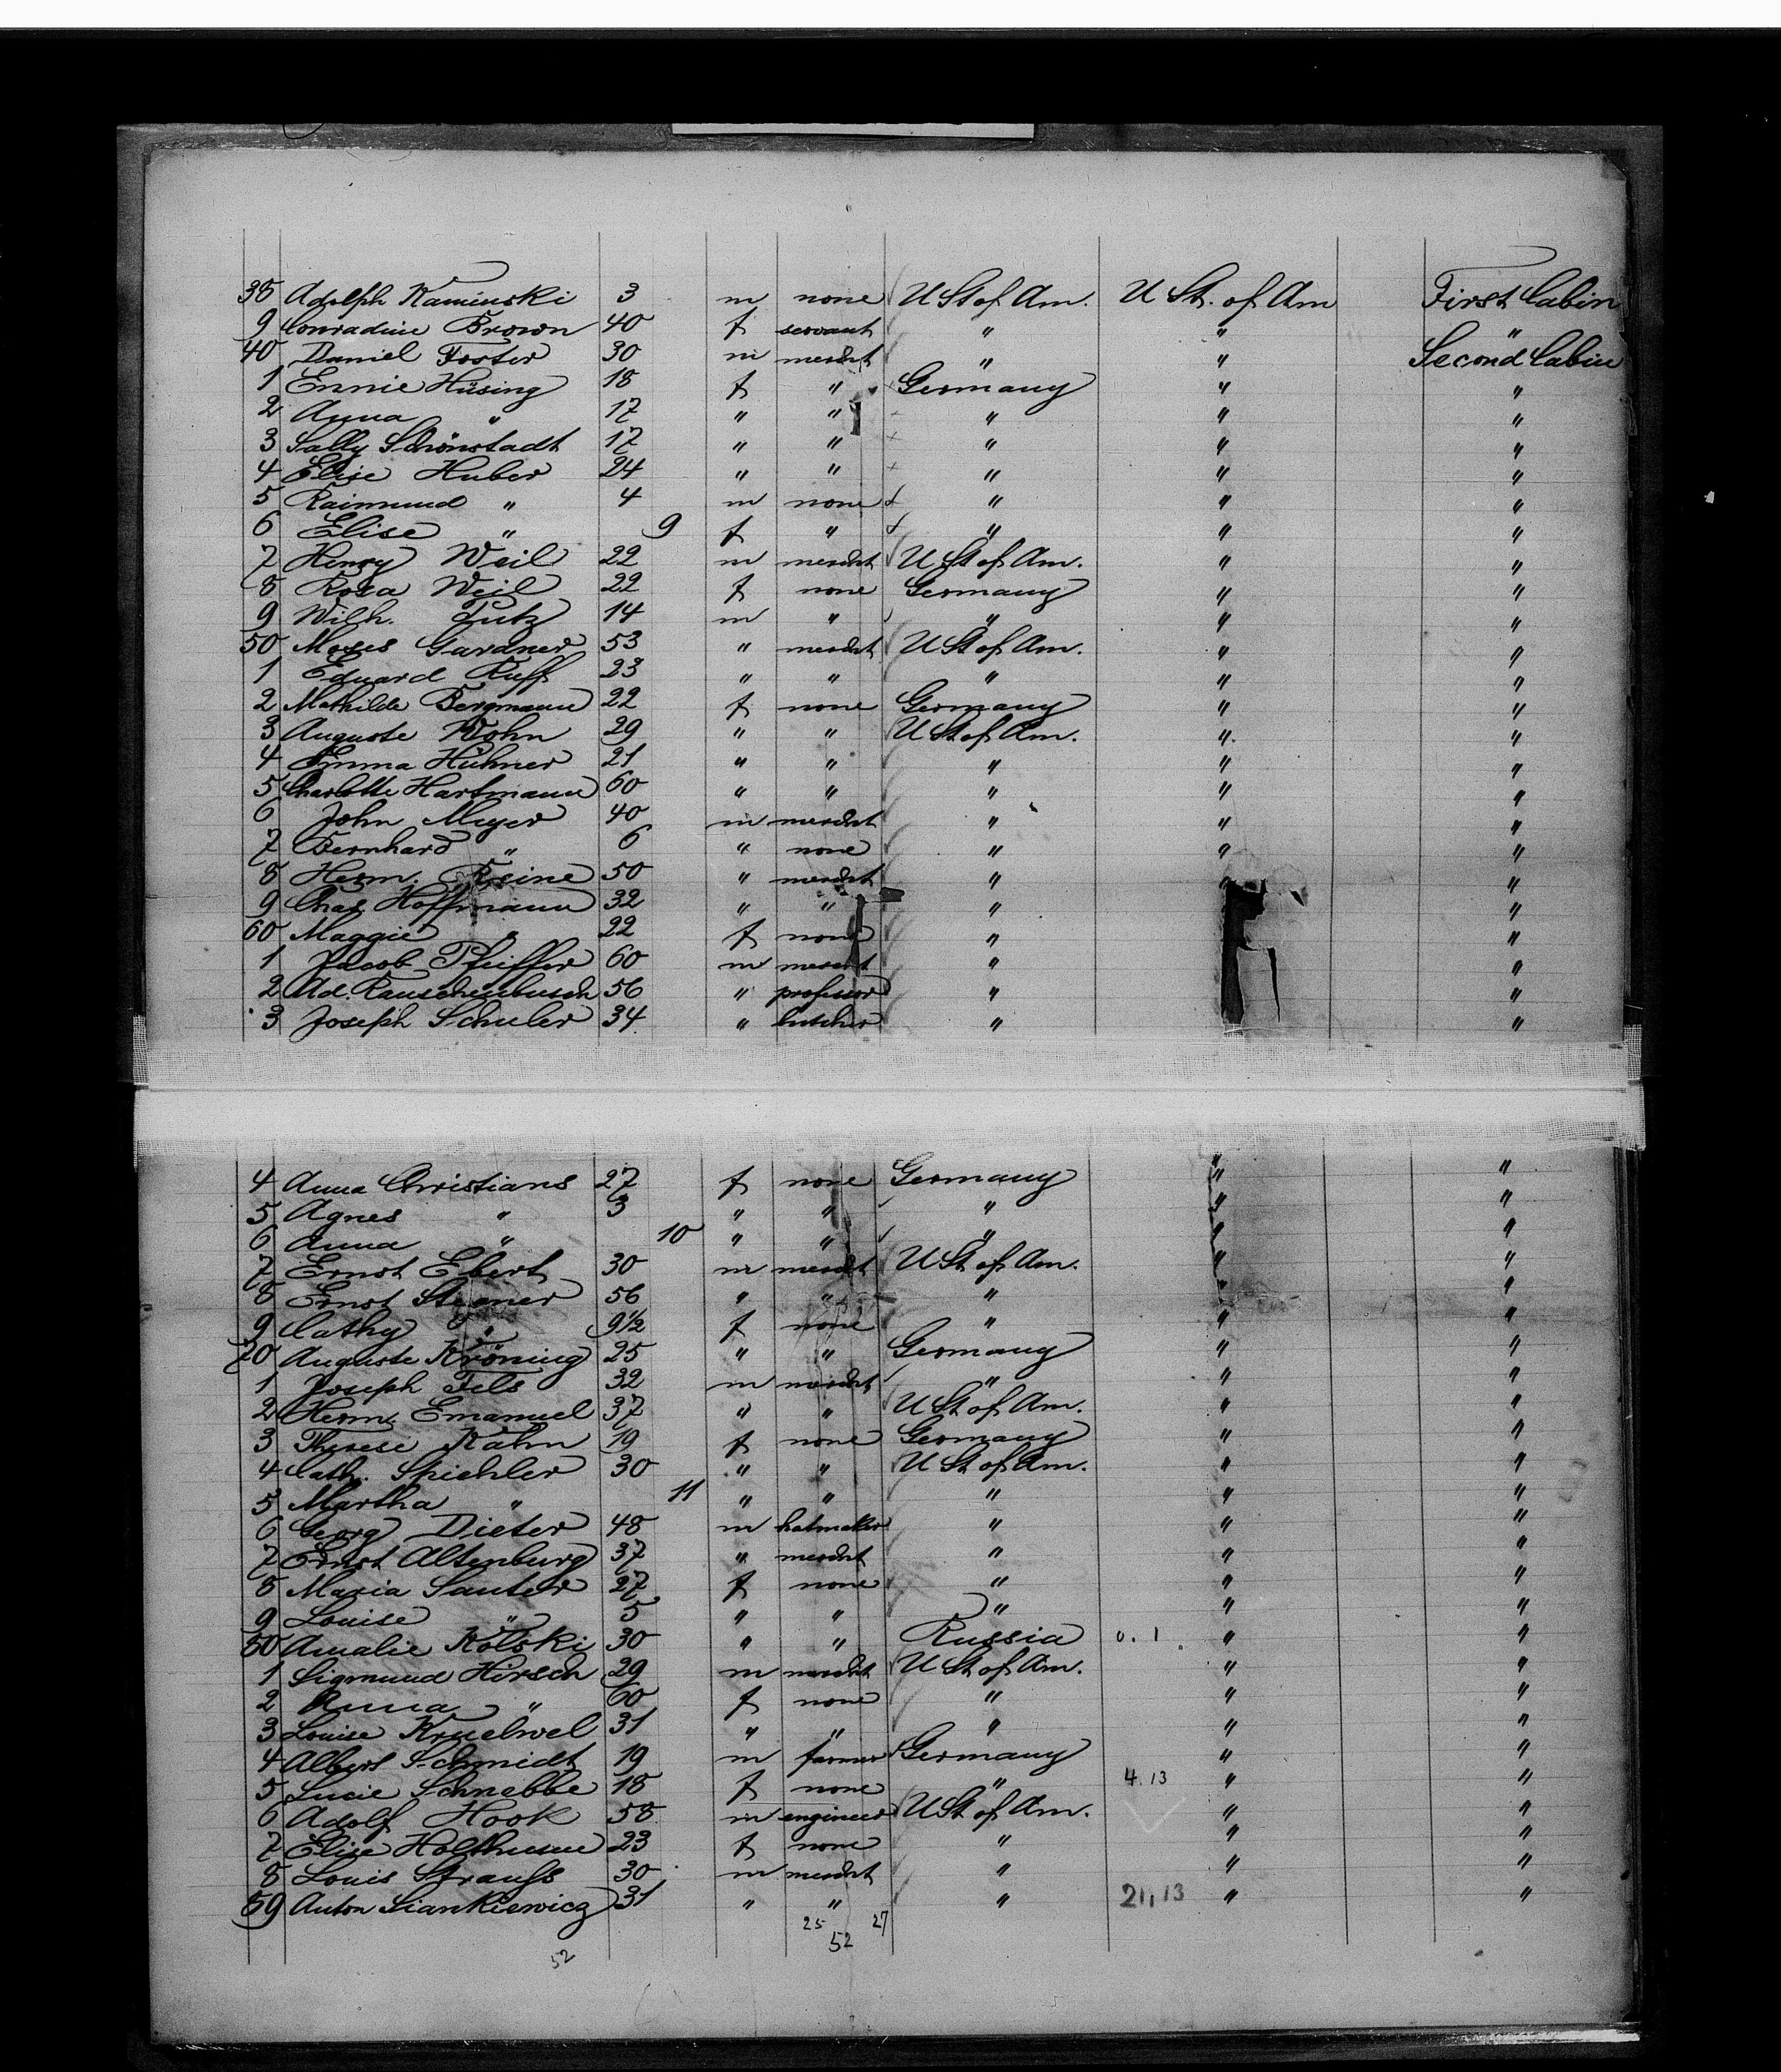 38 Adolph Kaminski 3 m none U St of Am. U St. of Am First Cabin
9 Conradine Brown 40 f servant " " "
40 Daniel Foster 30 m mercht " " Second Cabin
1 Ennie Hüsing 18 f " Germany " "
2 Anna " 17 " " " " "
3 Sally Schönstadt 17 " " " " "
4 Elise Huber 24 " " " " "
5 Raimund " 4 m none " " "
6 Elise " 9 f " " " "
7 Henry Weil 22 m mercht U St of Am. " "
8 Rosa Weil 22 f none Germany " "
9 Wilh. Putz 14 m " " " "
50 Moses Gardner 53 " mercht U St of Am. " "
1 Eduard Ruff 23 " " " " "
2 Mathilde Bergmann 22 f none Germany " "
3 Auguste Wohn 29 " " U St of Am. " "
4 Emma Hühner 21 " " " " "
5 Charlotte Hartmann 60 " " " " "
6 John Meyer 40 m mercht " " "
7 Bernhard " 6 " none " " "
8 Herm. Reine 50 " mercht " " "
9 Chas Hoffmann 32 " " " "
60 Maggie " 22 f none " "
1 Jacob Pfeiffer 60 m mercht " "
2 Ad. Rauschenbusch 56 " professor " "
3 Joseph Schuler 34 " butcher " "
" "
4 Anna Christians 27 f none Germany " "
5 Agnes " 3 " " " " "
6 Anna " 10 " " " " "
7 Ernst Ebert 30 m mercht U St of Am. " "
8 Ernst 56 " " " " "
9 Cathy " 9½ f none " " "
70 Auguste Kröning 25 " " Germany " "
1 Joseph Fels 32 m mercht " " "
2 Herm. Emanuel 37 " " U St of Am. " "
3 Therese Kahn 19 f none Germany " "
4 Cath. Spichler 30 " " U St of Am. " "
5 Martha " 11 " " " " "
6 Georg Dieter 48 m hatmaker " " "
7 Ernst Altenburg 37 " mercht " " "
8 Maria Sauter 27 f none " " "
9 Louise " 5 " " " " "
80 Amalie Kolski 30 " " Russia 0. 1 " "
1 Sigmund Hirsch 29 m mercht U St of Am. " "
2 Anna " 60 f none " " "
3 Louise 31 " " " " "
4 Albert Schmidt 19 m farmer Germany " "
5 Lucie Schnebbe 18 f none " 4. 13 " "
6 Adolf Hook 58 m engineer U St of Am. " "
7 Elise Holthusen 23 f none " " "
8 Louis Strauß 30 m mercht " " "
89 Anton Siankiewicz 31 " " " 21, 13 " "
25 27
52
52